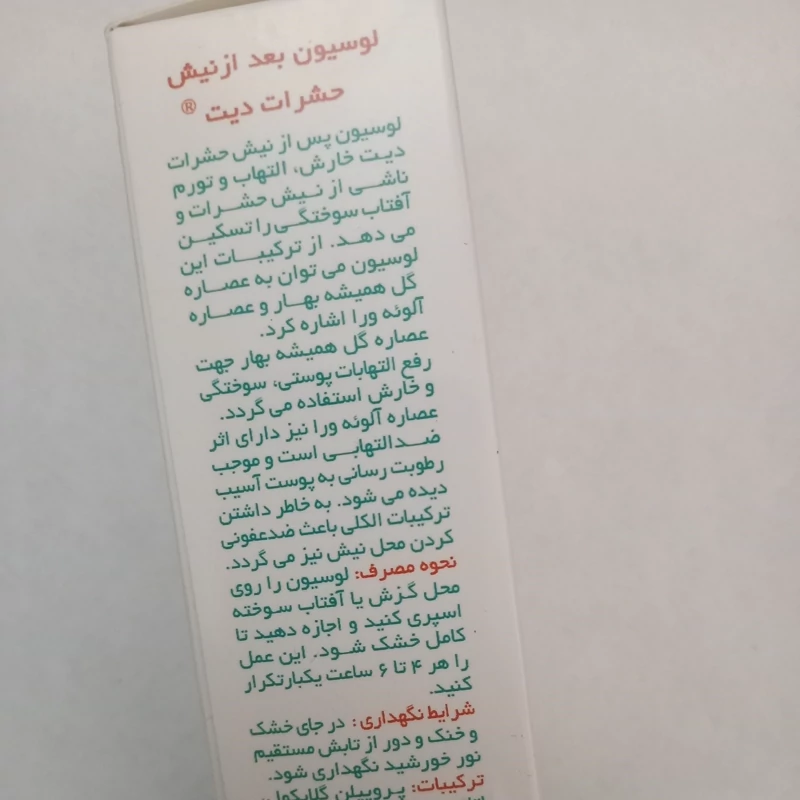 لوسیون بعد ازنیش
حشرات دیت ®
لوسیون پس از نیش حشرات
دیت خارش، التهاب و تورم
ناشی از نیش حشرات و
آفتاب سوختگی را تسکین
می دهد. از ترکیبات این
لوسیون می توان به عصاره
گل همیشه بهار و عصاره
آلوئه ورا اشاره کرد.
عصاره گل همیشه بهار جهت
رفع التهابات پوستی، سوختگی
و خارش استفاده می گردد.
عصاره آلوئه ورا نیز دارای اثر
ضدالتهابی است و موجب
رطوبت رسانی به پوست آسیب
دیده می شود. به خاطر داشتن
ترکیبات الکلی باعث ضدعفونی
کردن محل نیش نیز می گردد.
نحوه مصرف: لوسیون را روی
محل گزش یا آفتاب سوخته
اسپری کنید و اجازه دهید تا
کامل خشک شود. این عمل
را هر ۴ تا ۶ ساعت یکبارتکرار
کنید.
شرایط نگهداری: در جای خشک
و خنک و دور از تابش مستقیم
نور خورشید نگهداری شود.
ترکیبات: پروپیلن گلایکول،